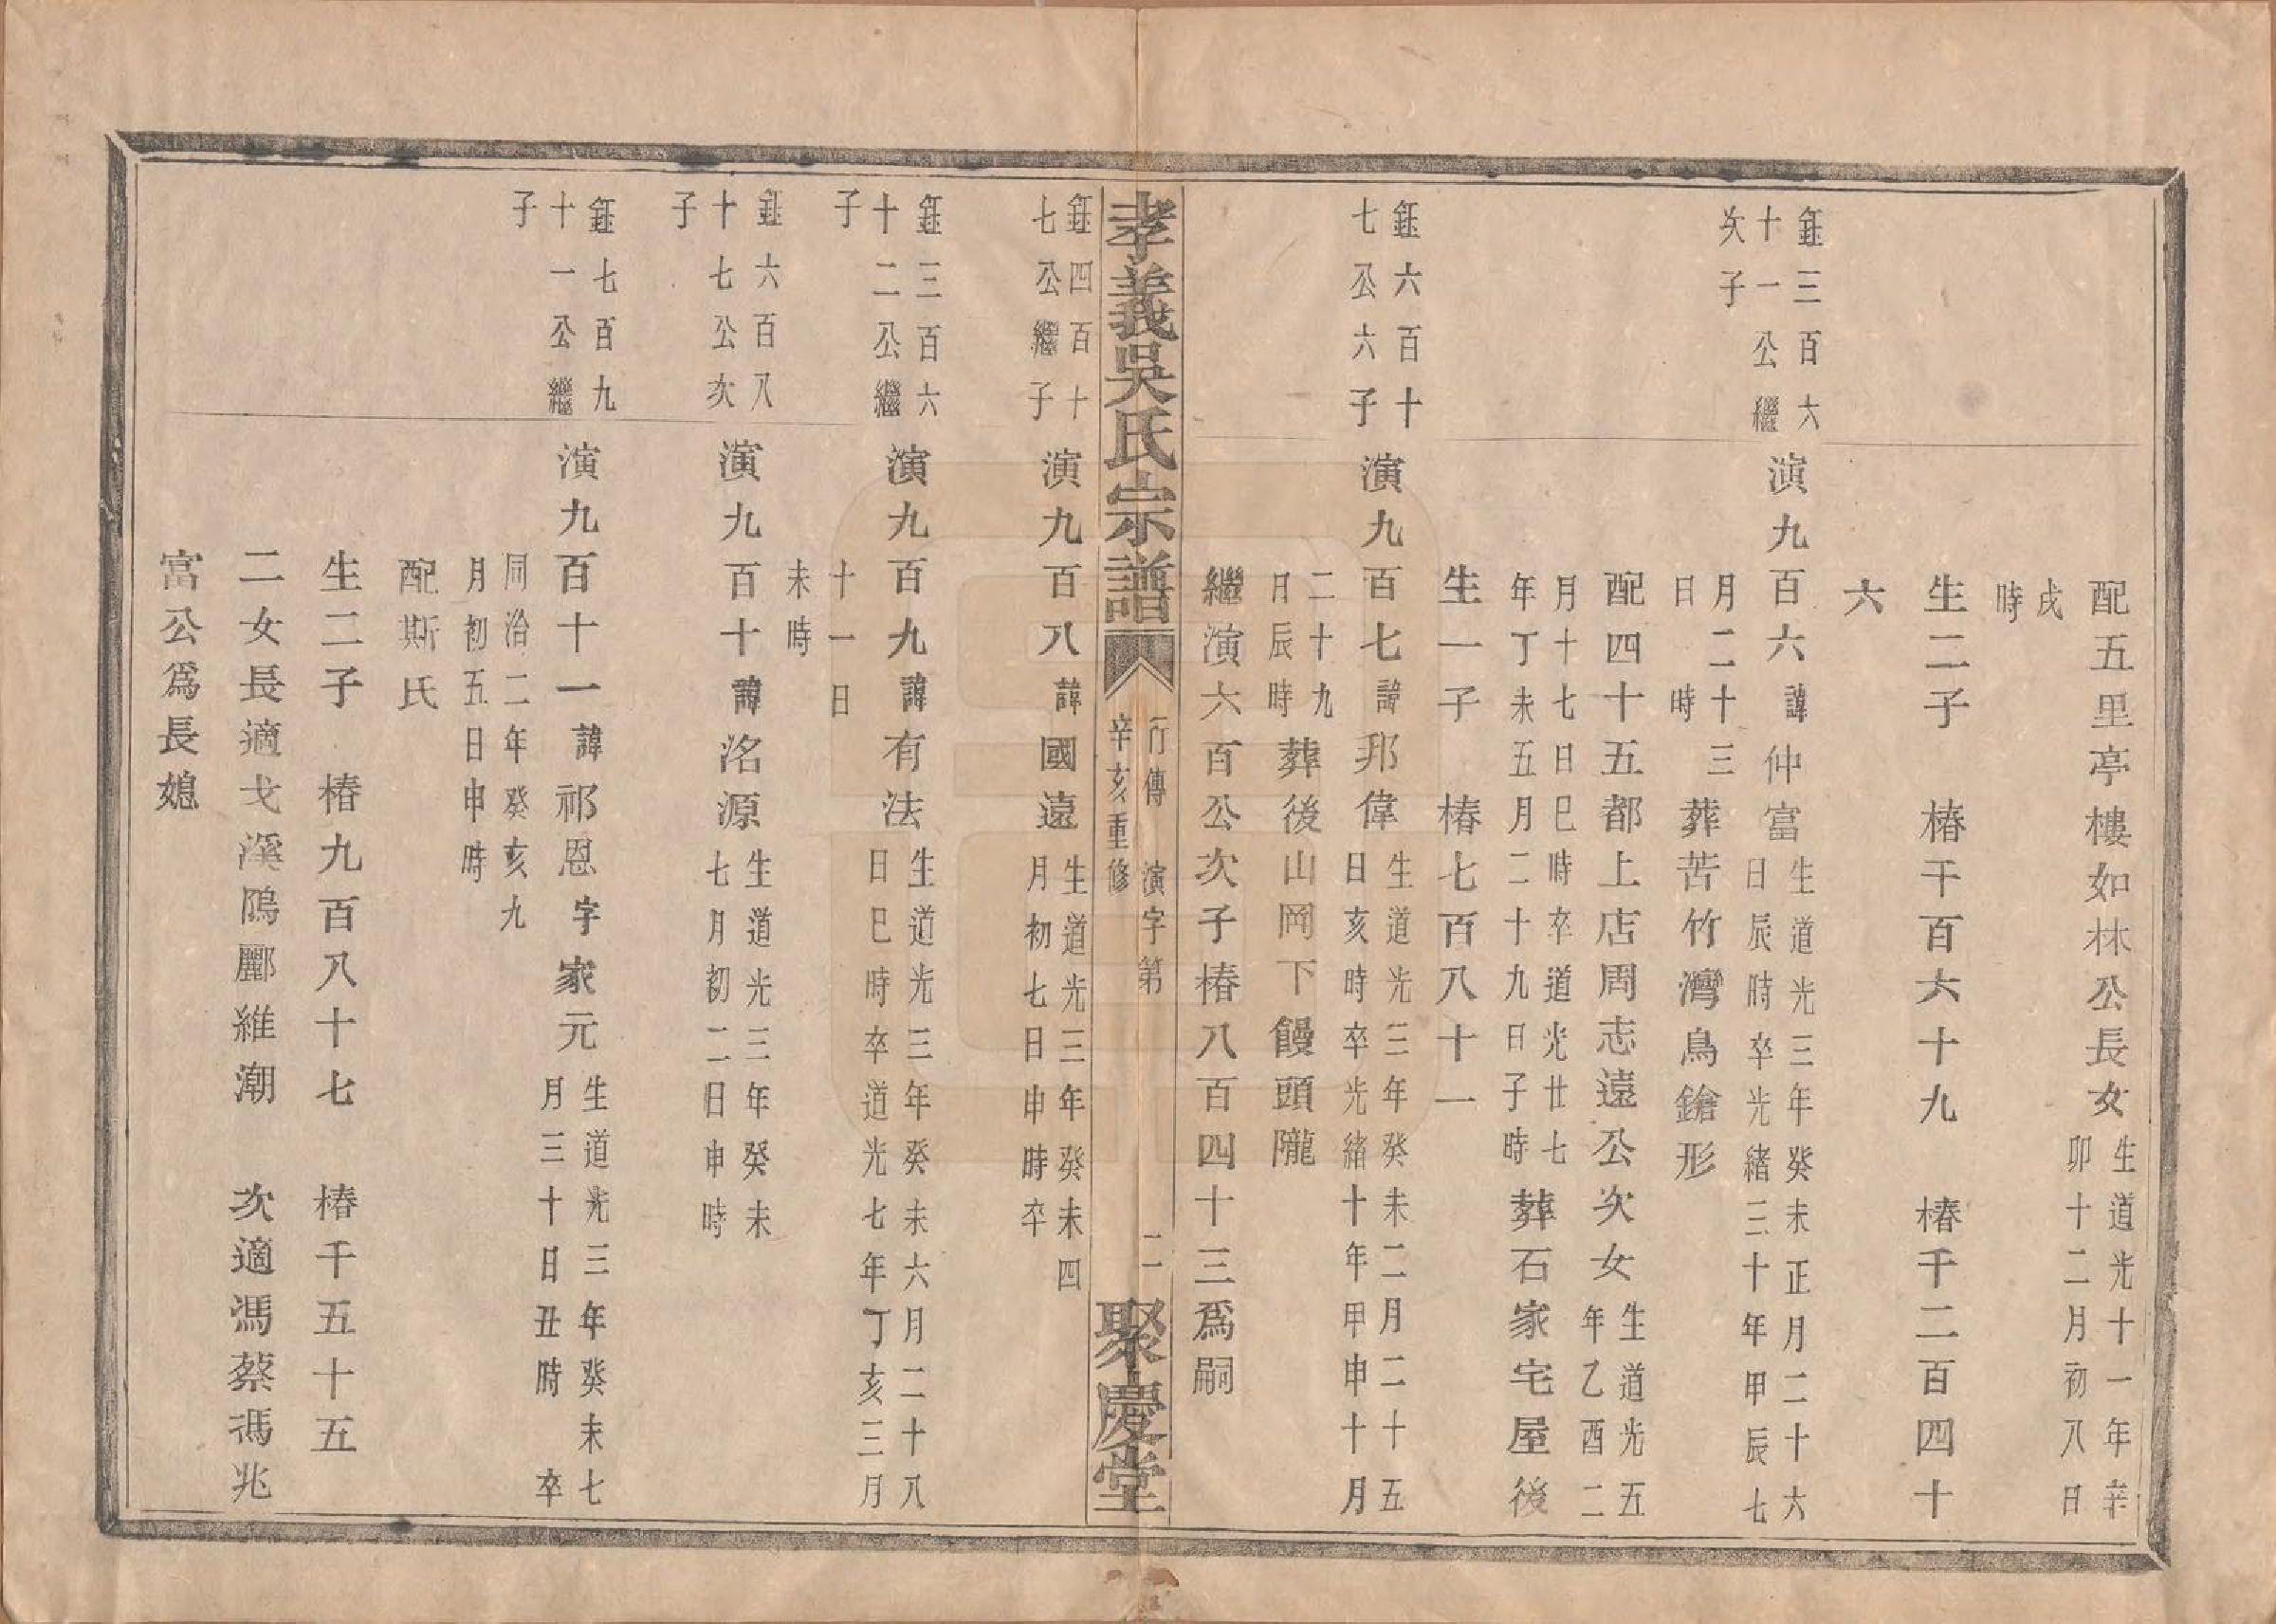 配五里亭樓如林公長女
生道光十一年辛
卯十二月初八日
戌
時
生二子　椿千百六十九　椿千二百四十
六
鈺三百六
十一公繼
次子
演九百六諱仲富
生道光三年癸未正月二十六
日辰時卒光緒三十年甲辰七
月二十三
日時
葬苦竹灣鳥鎗形
配四十五都上店周志遠公次女
生道光五
年乙酉二
月十七日巳時卒道光廿七
年丁未五月二十九日子時
葬石家宅屋後
生一子　椿七百八十一
鈺六百十
七公六子
演九百七諱邦偉
生道光三年癸未二月二十五
日亥時卒光緒十年甲申十月
二十九
日辰時
葬後山岡下饅頭隴
繼演六百公次子椿八百四十三爲嗣
孝義吳氏宗譜
行傳　演字第　二
辛亥重修
聚慶堂
鈺四百十
七公繼子
演九百八諱國遠
生道光三年癸未四
月初七日申時卒
鈺三百六
十二公繼
子
演九百九諱有法
生道光三年癸未六月二十八
日巳時卒道光七年丁亥三月
十一日
未時
鈺六百八
十七公次
子
演九百十諱洺源
生道光三年癸未
七月初二日申時
鈺七百九
十一公繼
子
演九百十一諱祁恩字家元
生道光三年癸未七
月三十日丑時　卒
同治二年癸亥九
月初五日申時
配斯氏
生二子　椿九百八十七　椿千五十五
二女長適戈溪隝酈維潮　次適馮蔡禡兆
富公爲長媳